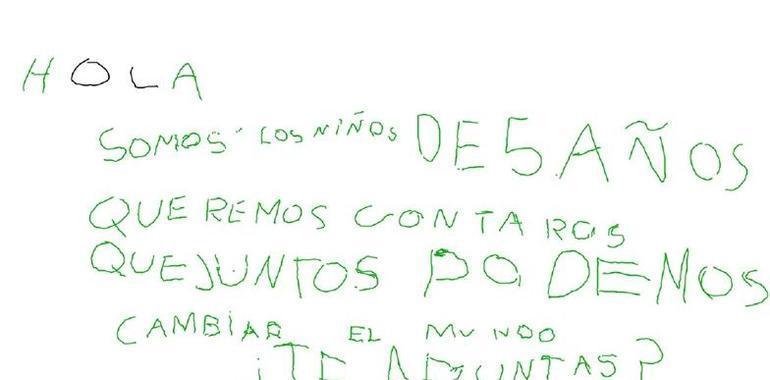 HOLA
SOMOS LOS NIÑOS DE 5 AÑOS
QUEREMOS CONTAROS
QUE JUNTOS PODEMOS
CAMBIAR EL MUNDO
¡TE APUNTAS?